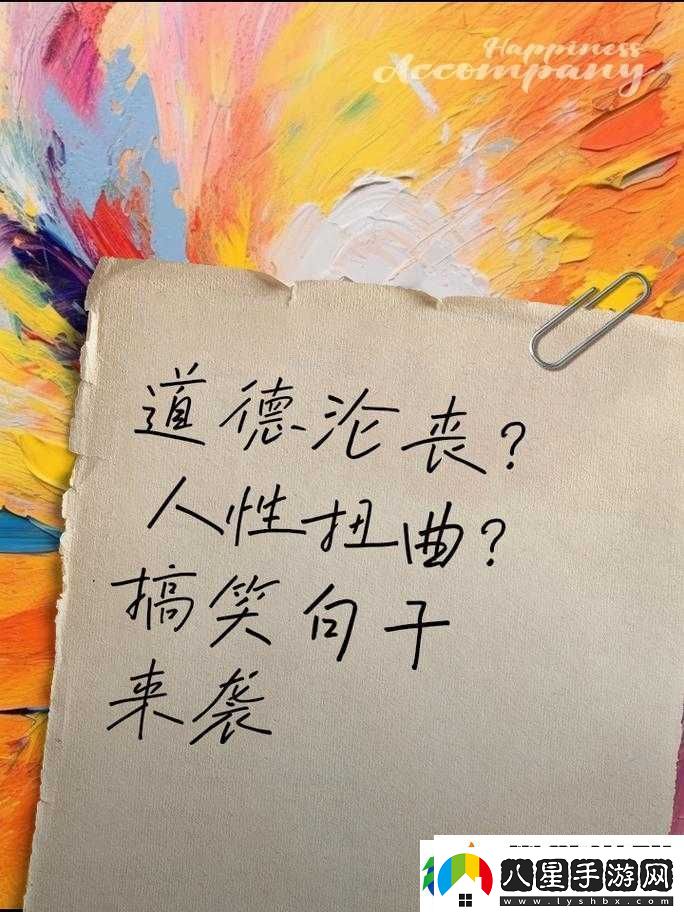 Happiness
Accompany
道德沦丧?
人性扭曲?
搞笑句子
来袭
八星手游网
www.lyshbx.com